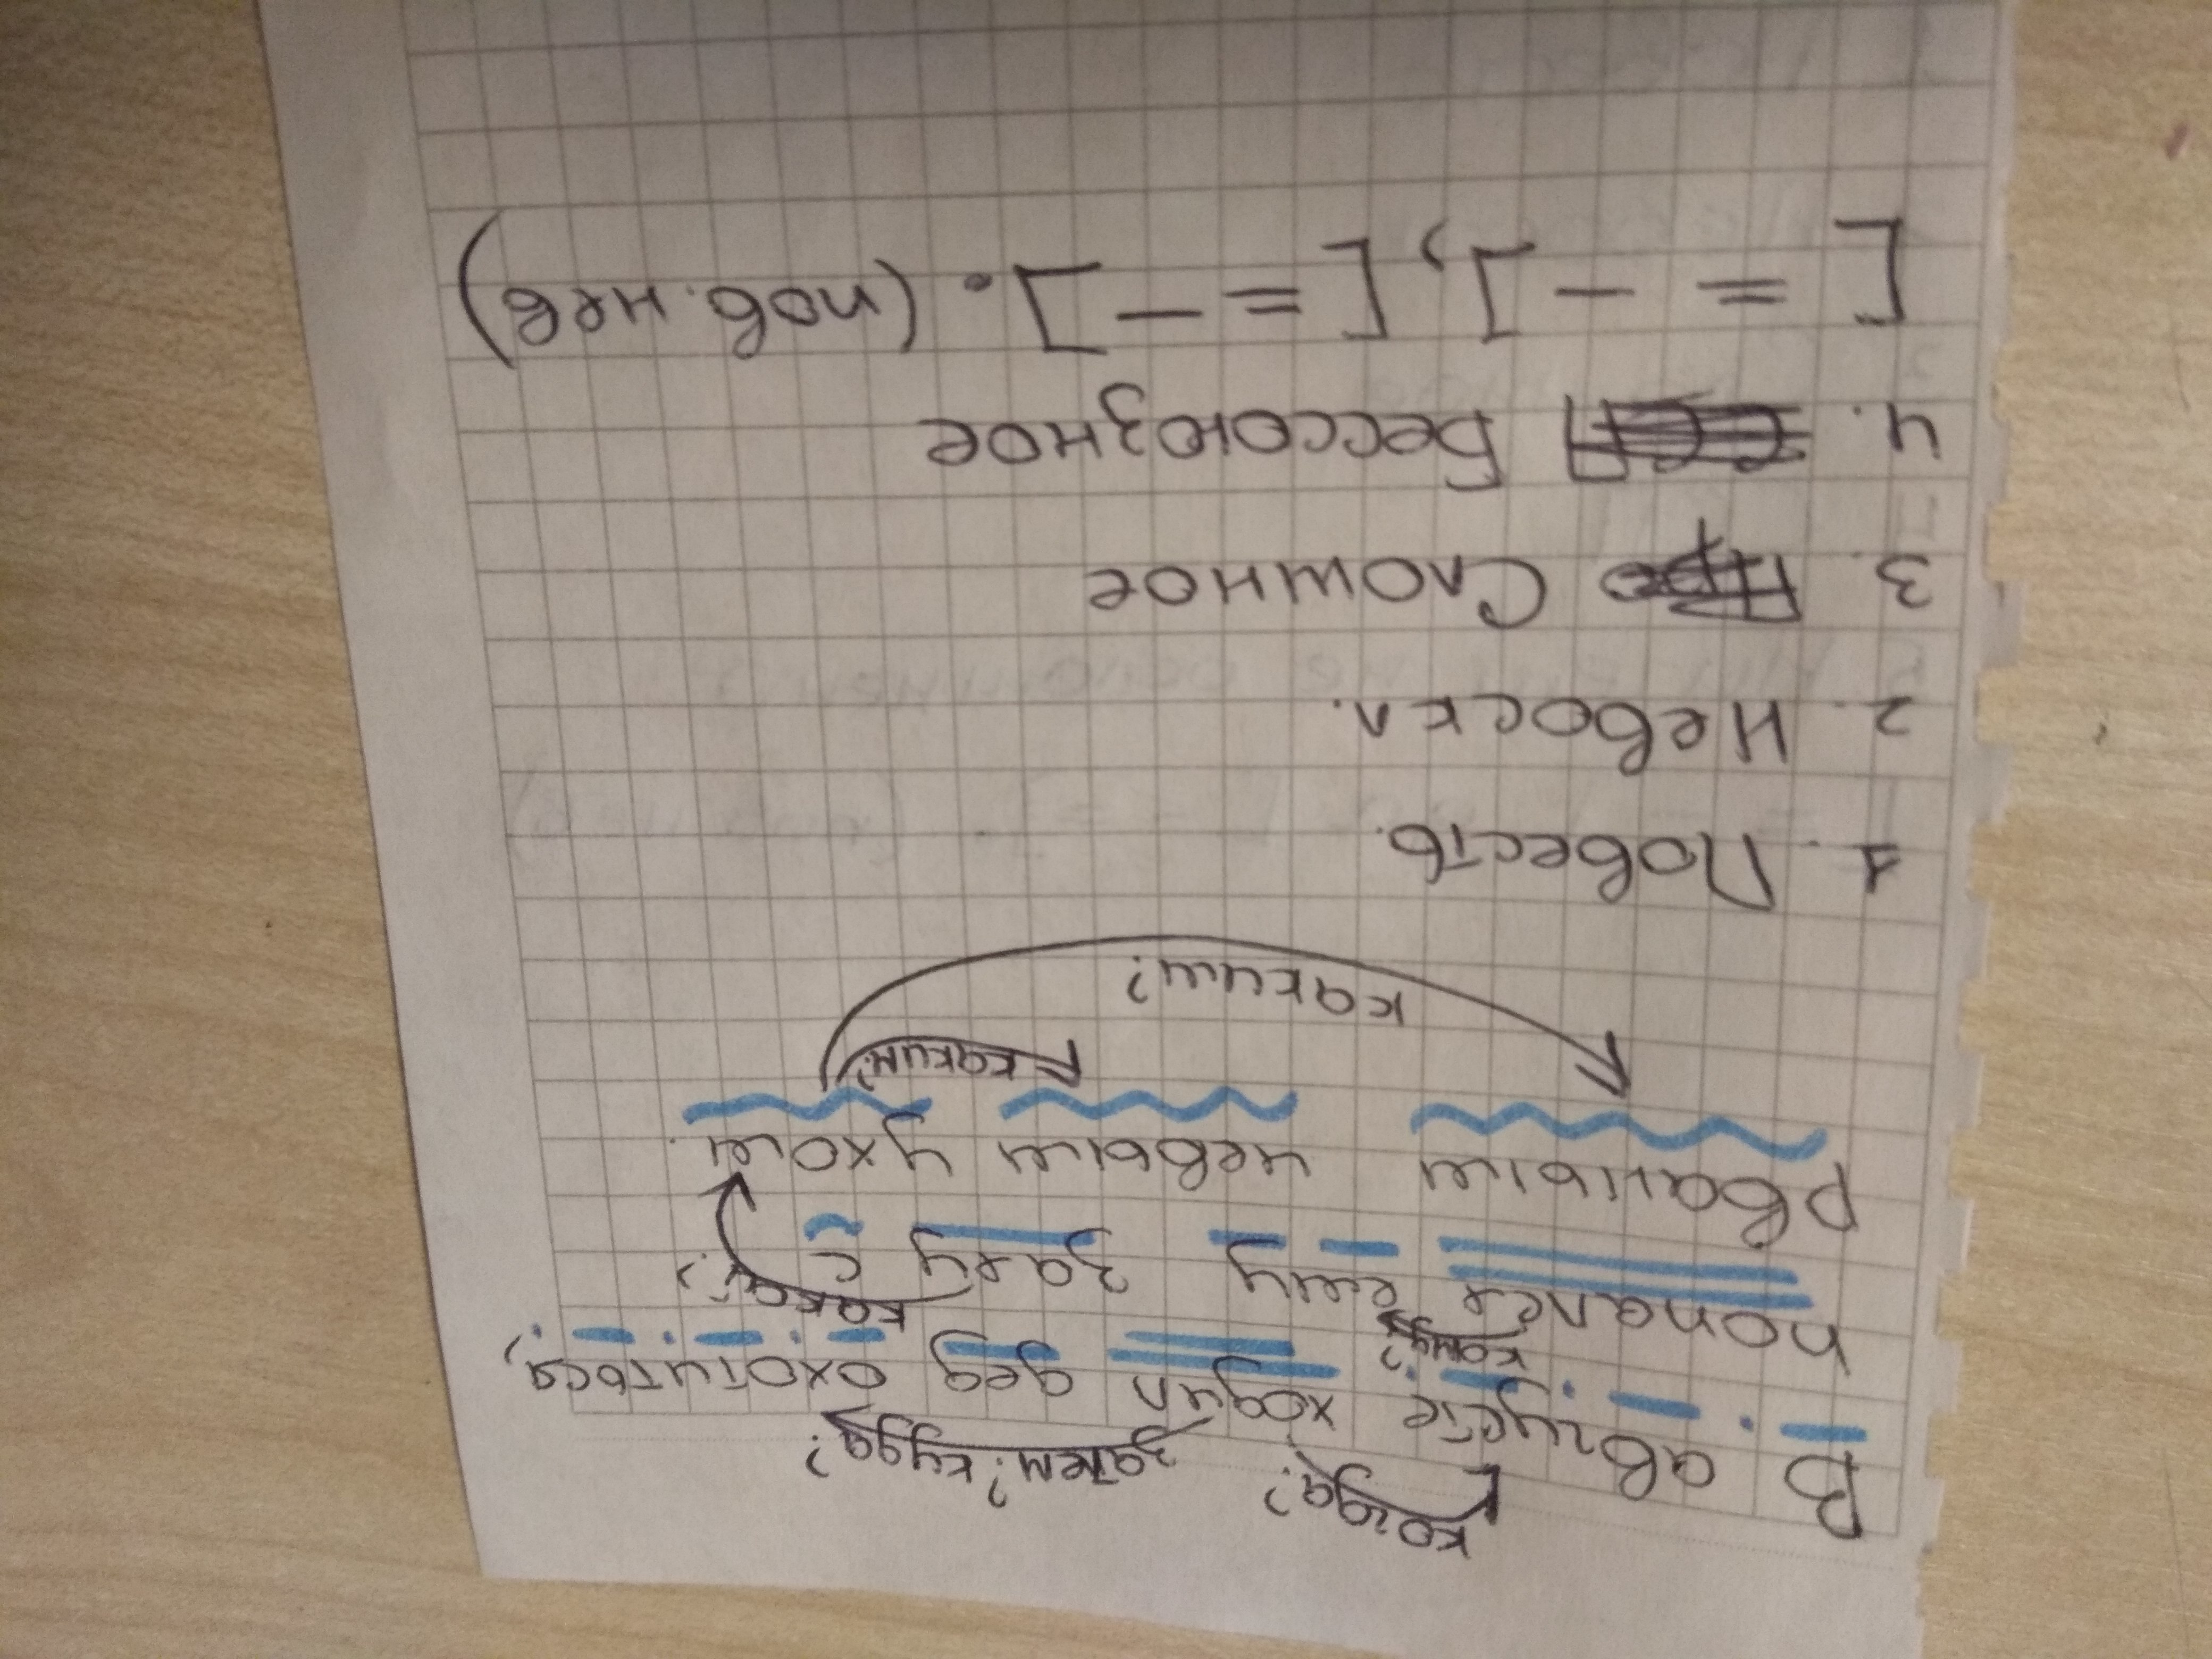 когда? зачем? куда?
В августе ходил дед охотиться,
кому? какая?
попался ему заяу с
рваным левым ухом.
каким? каким?
1. Повесть.
2. Невоскл.
3. Сложное
4. Бессоюзное
[= –], [= –]. (пов. нев)